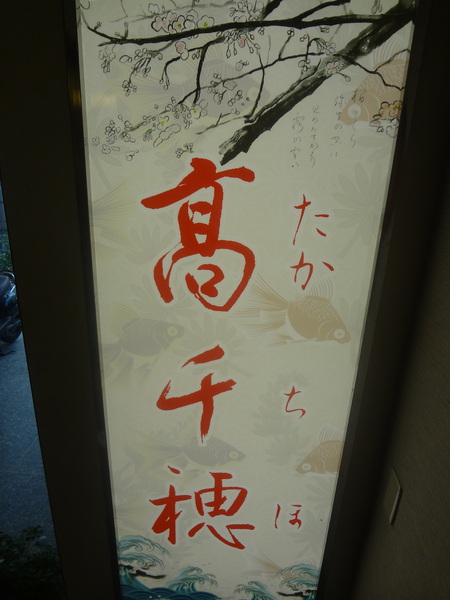 髙千穂
たかちほ